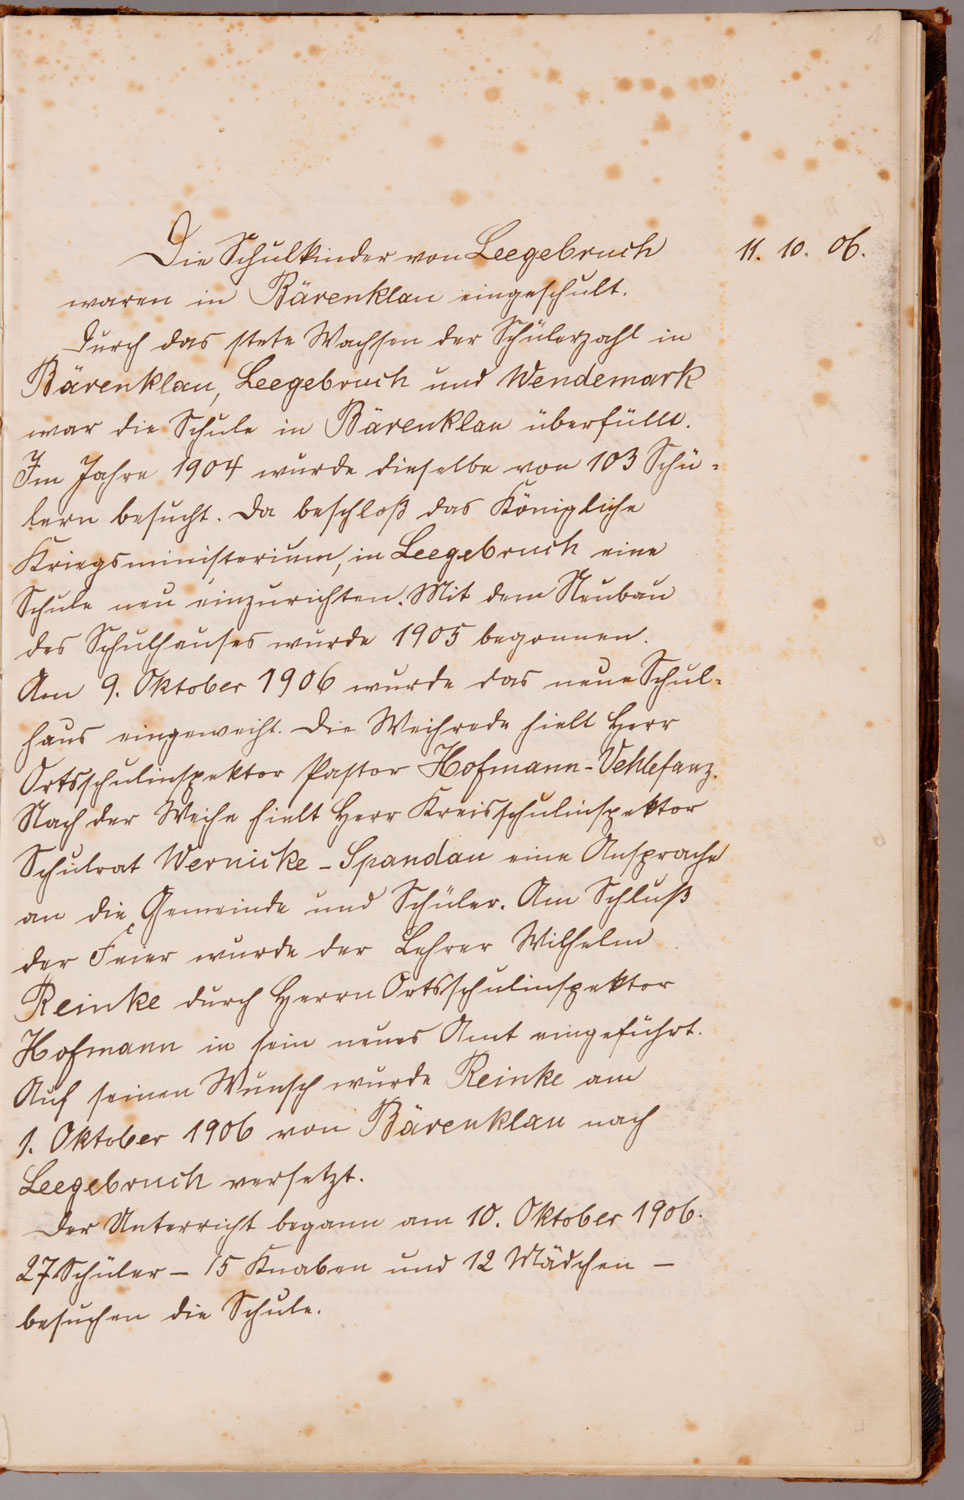 11. 10. 06.
Die Schulkinder von Leegebruch
waren in Bärenklau eingeschult.
Durch das stete Wachsen der Schülerzahl in
Bärenklau, Leegebruch und Wendemark
war die Schule in Bärenklau überfüllt.
Im Jahre 1904 wurde dieselbe von 103 Schü-
lern besucht. Da beschloß das Königliche
Kriegsministerium, in Leegebruch eine
Schule neu einzurichten. Mit dem Neubau
des Schulhauses wurde 1905 begonnen.
Am 9. Oktober 1906 wurde das neue Schul-
haus eingeweiht. Die Weihrede hielt Herr
Ortsschulinspektor Pastor Hofmann-Vehlefanz.
Nach der Weihe hielt Herr Kreisschulinspektor
Schulrat Wernicke - Spandau eine Ansprache
an die Gemeinde und Schüler. Am Schluß
der Feier wurde der Lehrer Wilhelm
Reinke durch Herrn Ortsschulinspektor
Hofmann in sein neues Amt eingeführt.
Auf seinen Wunsch wurde Reinke am
1. Oktober 1906 von Bärenklau nach
Leegebruch versetzt.
Der Unterricht begann am 10. Oktober 1906.
27 Schüler – 15 Knaben und 12 Mädchen –
besuchen die Schule.